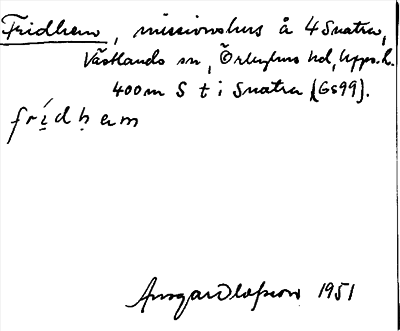 Fridhem, missionshus å 4 Snatra,
Västlands sn, Örbyhus hd, Upps. l.
400m S t i Snatra (Gs99).
frídhem
Ansgar Olofsson 1951